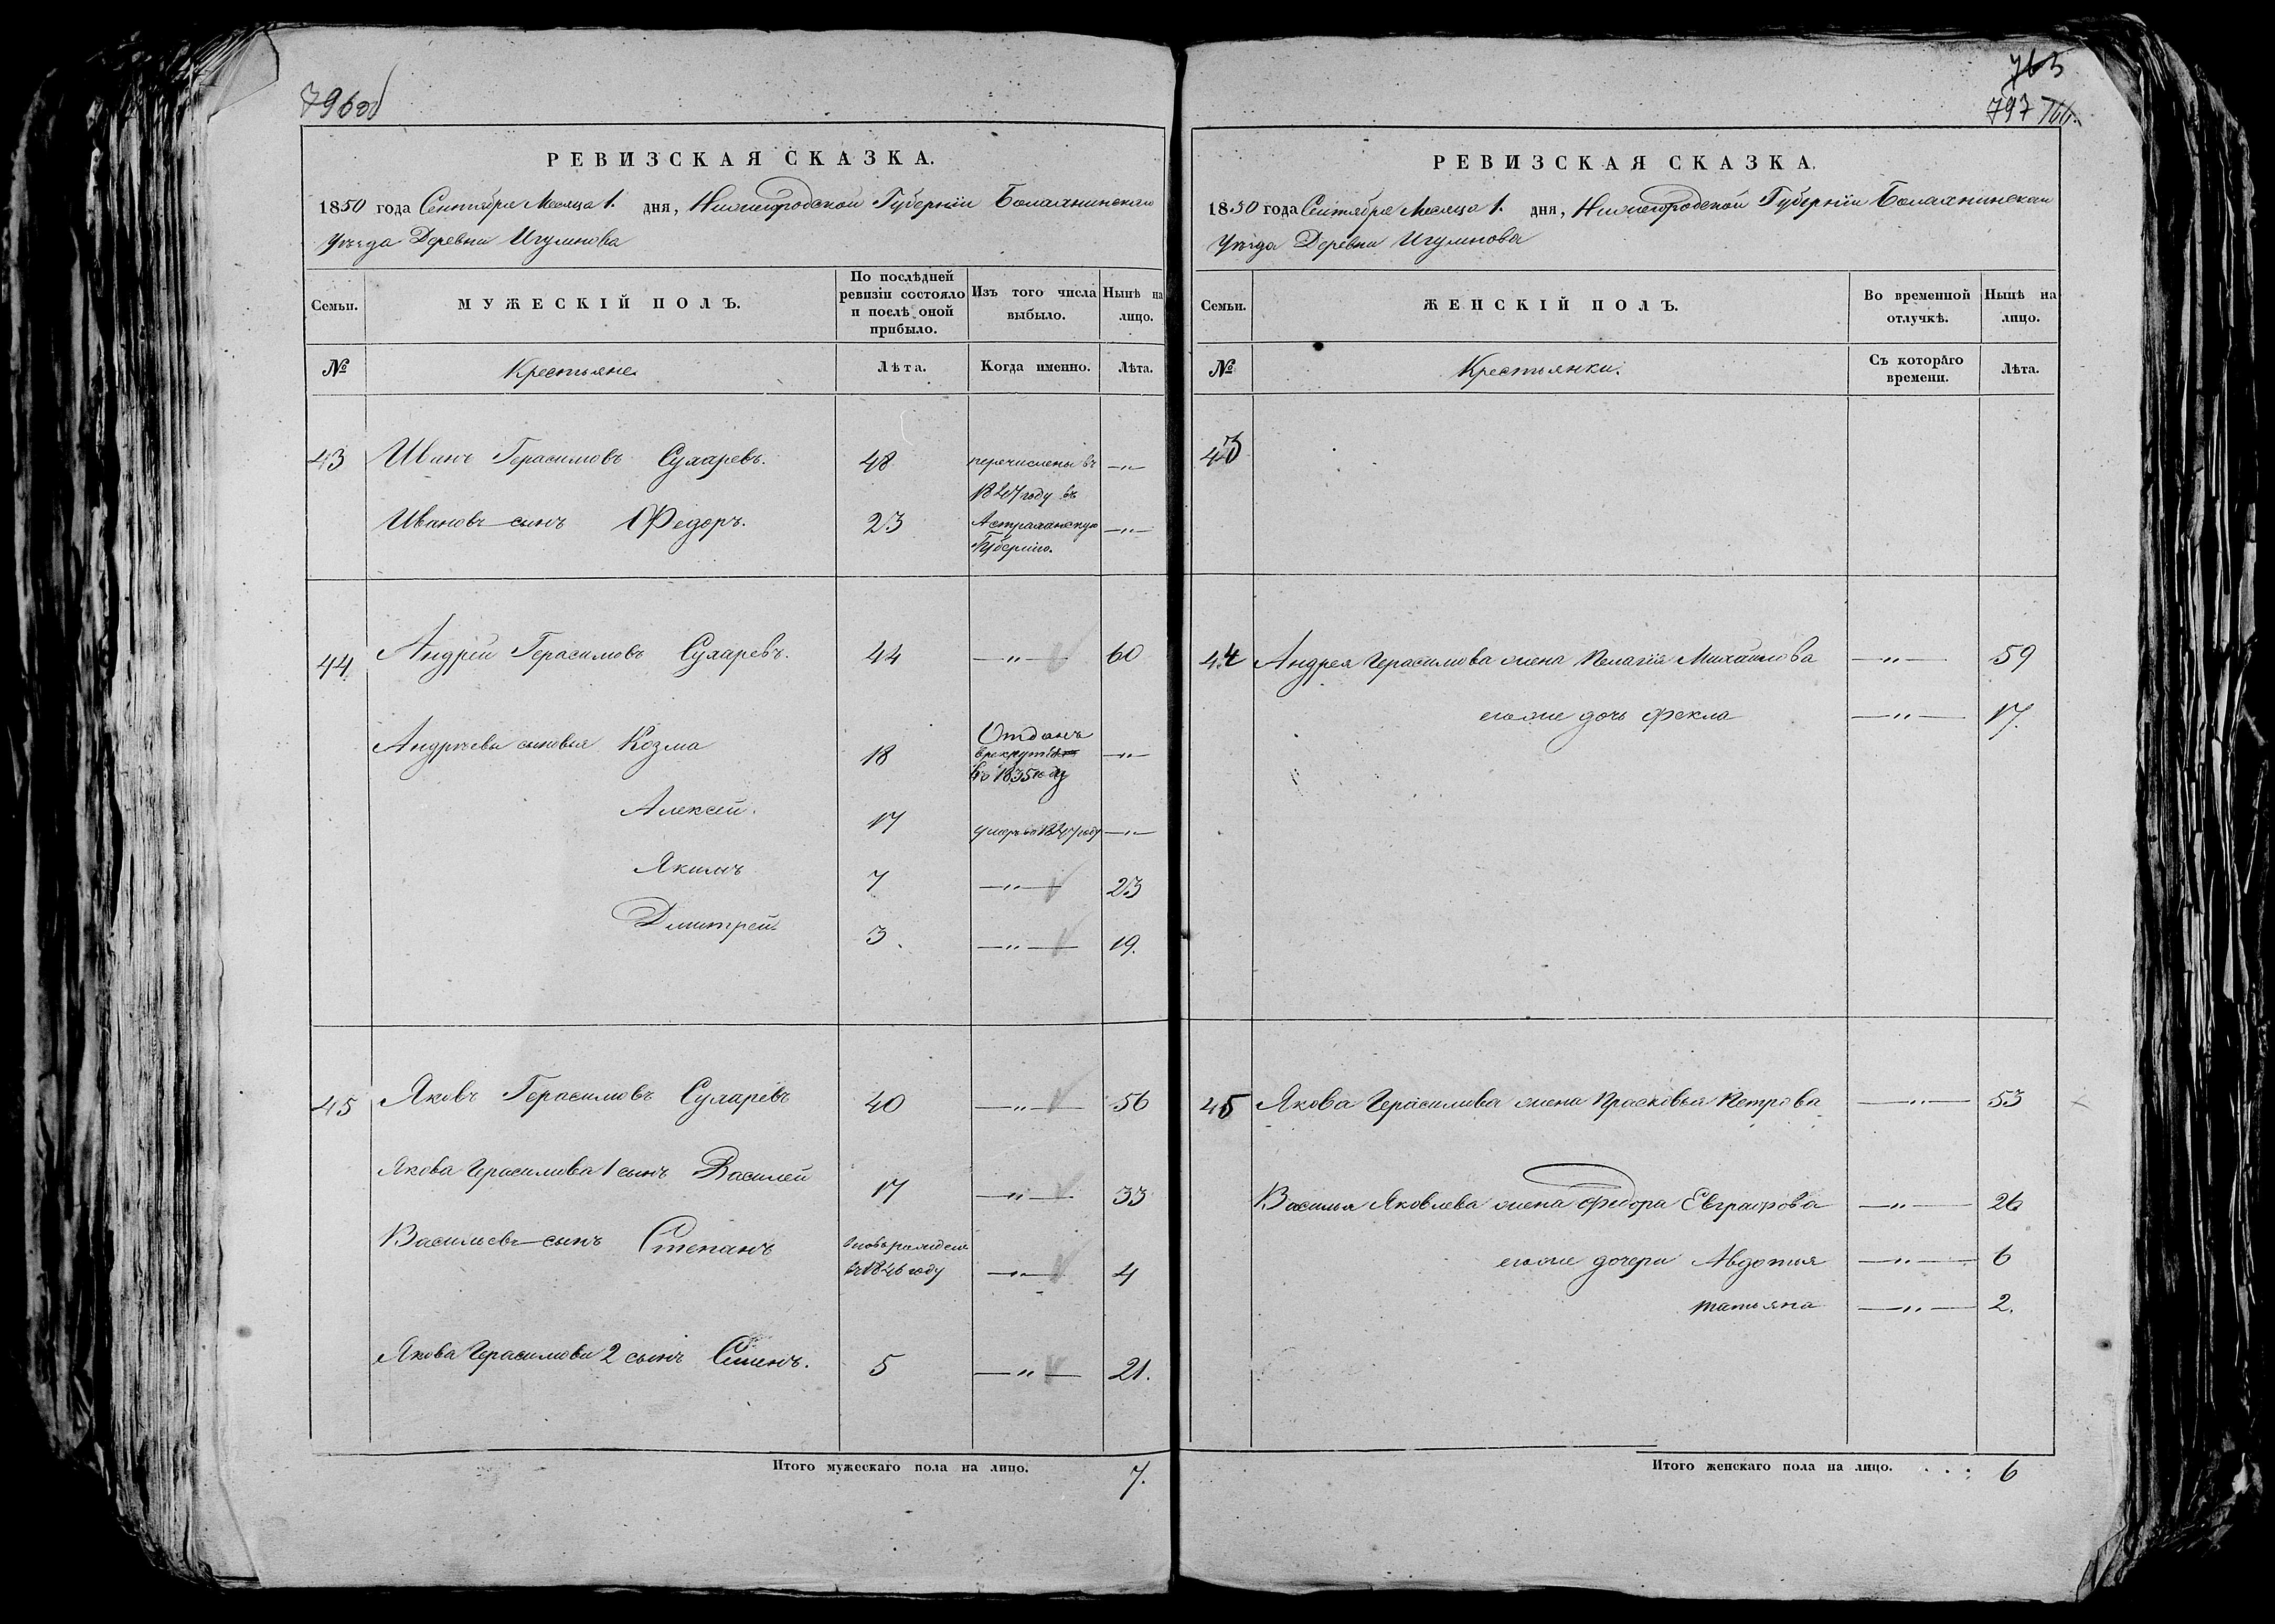 796об
РЕВИЗСКАЯ СКАЗКА.
1850 года Сентября Месяца 1. дня, Нижегородской Губерніи Балахнинскаго
Уѣзда Деревни Игумнова
Семьи. МУЖЕСКІЙ ПОЛЪ. По послѣдней ревизіи состояло и послѣ оной прибыло. Изъ того числа выбыло. Нынѣ на лицо.
№ Крестьяне Лѣта. Когда именно. Лѣта.
43 Иванъ Герасимовъ Сухаревъ. 48 перечислены въ —"—
1847 году въ
Ивановъ сынъ Федоръ. 23 Астраханскую —"—
Губернію.
44 Андрей Герасимовъ Сухаревъ. 44 —"— 60
Андреевы сыновья Козма 18 Отданъ —"—
в рекруты
въ 1835 году
Алексей. 17 умеръ въ 1847 году —"—
Якимъ 7 —"— 23
Дмитрей 3. —"— 19.
45 Яковъ Герасимовъ Сухаревъ 40 —"— 56
Якова Герасимова 1 сынъ Василей 17 —"— 33
Васильевъ сынъ Степанъ вновь рожденъ
въ 1846 году —"— 4
Якова Герасимова 2 сынъ Семенъ. 5 —"— 21.
Итого мужескаго пола на лицо. 7.
765
797 766.
РЕВИЗСКАЯ СКАЗКА.
1850 года Сентября Месяца 1. дня, Нижегородской Губерніи Балахнинскаго
Уѣзда Деревни Игумнова
Семьи. ЖЕНСКІЙ ПОЛЪ. Во временной отлучкѣ. Нынѣ на лицо.
№ Крестьянки. Съ котораго времени. Лѣта.
43
44 Андрея Герасимова жена Пелагія Михайлова —"— 59
его же дочь Фекла —"— 17.
45 Якова Герасимова жена Прасковья Петрова —"— 53
Василья Яковлева жена Федора Евграфова —"— 26
его же дочери Авдотья —"— 6
Татьяна —"— 2.
Итого женскаго пола на лицо. . . . 6